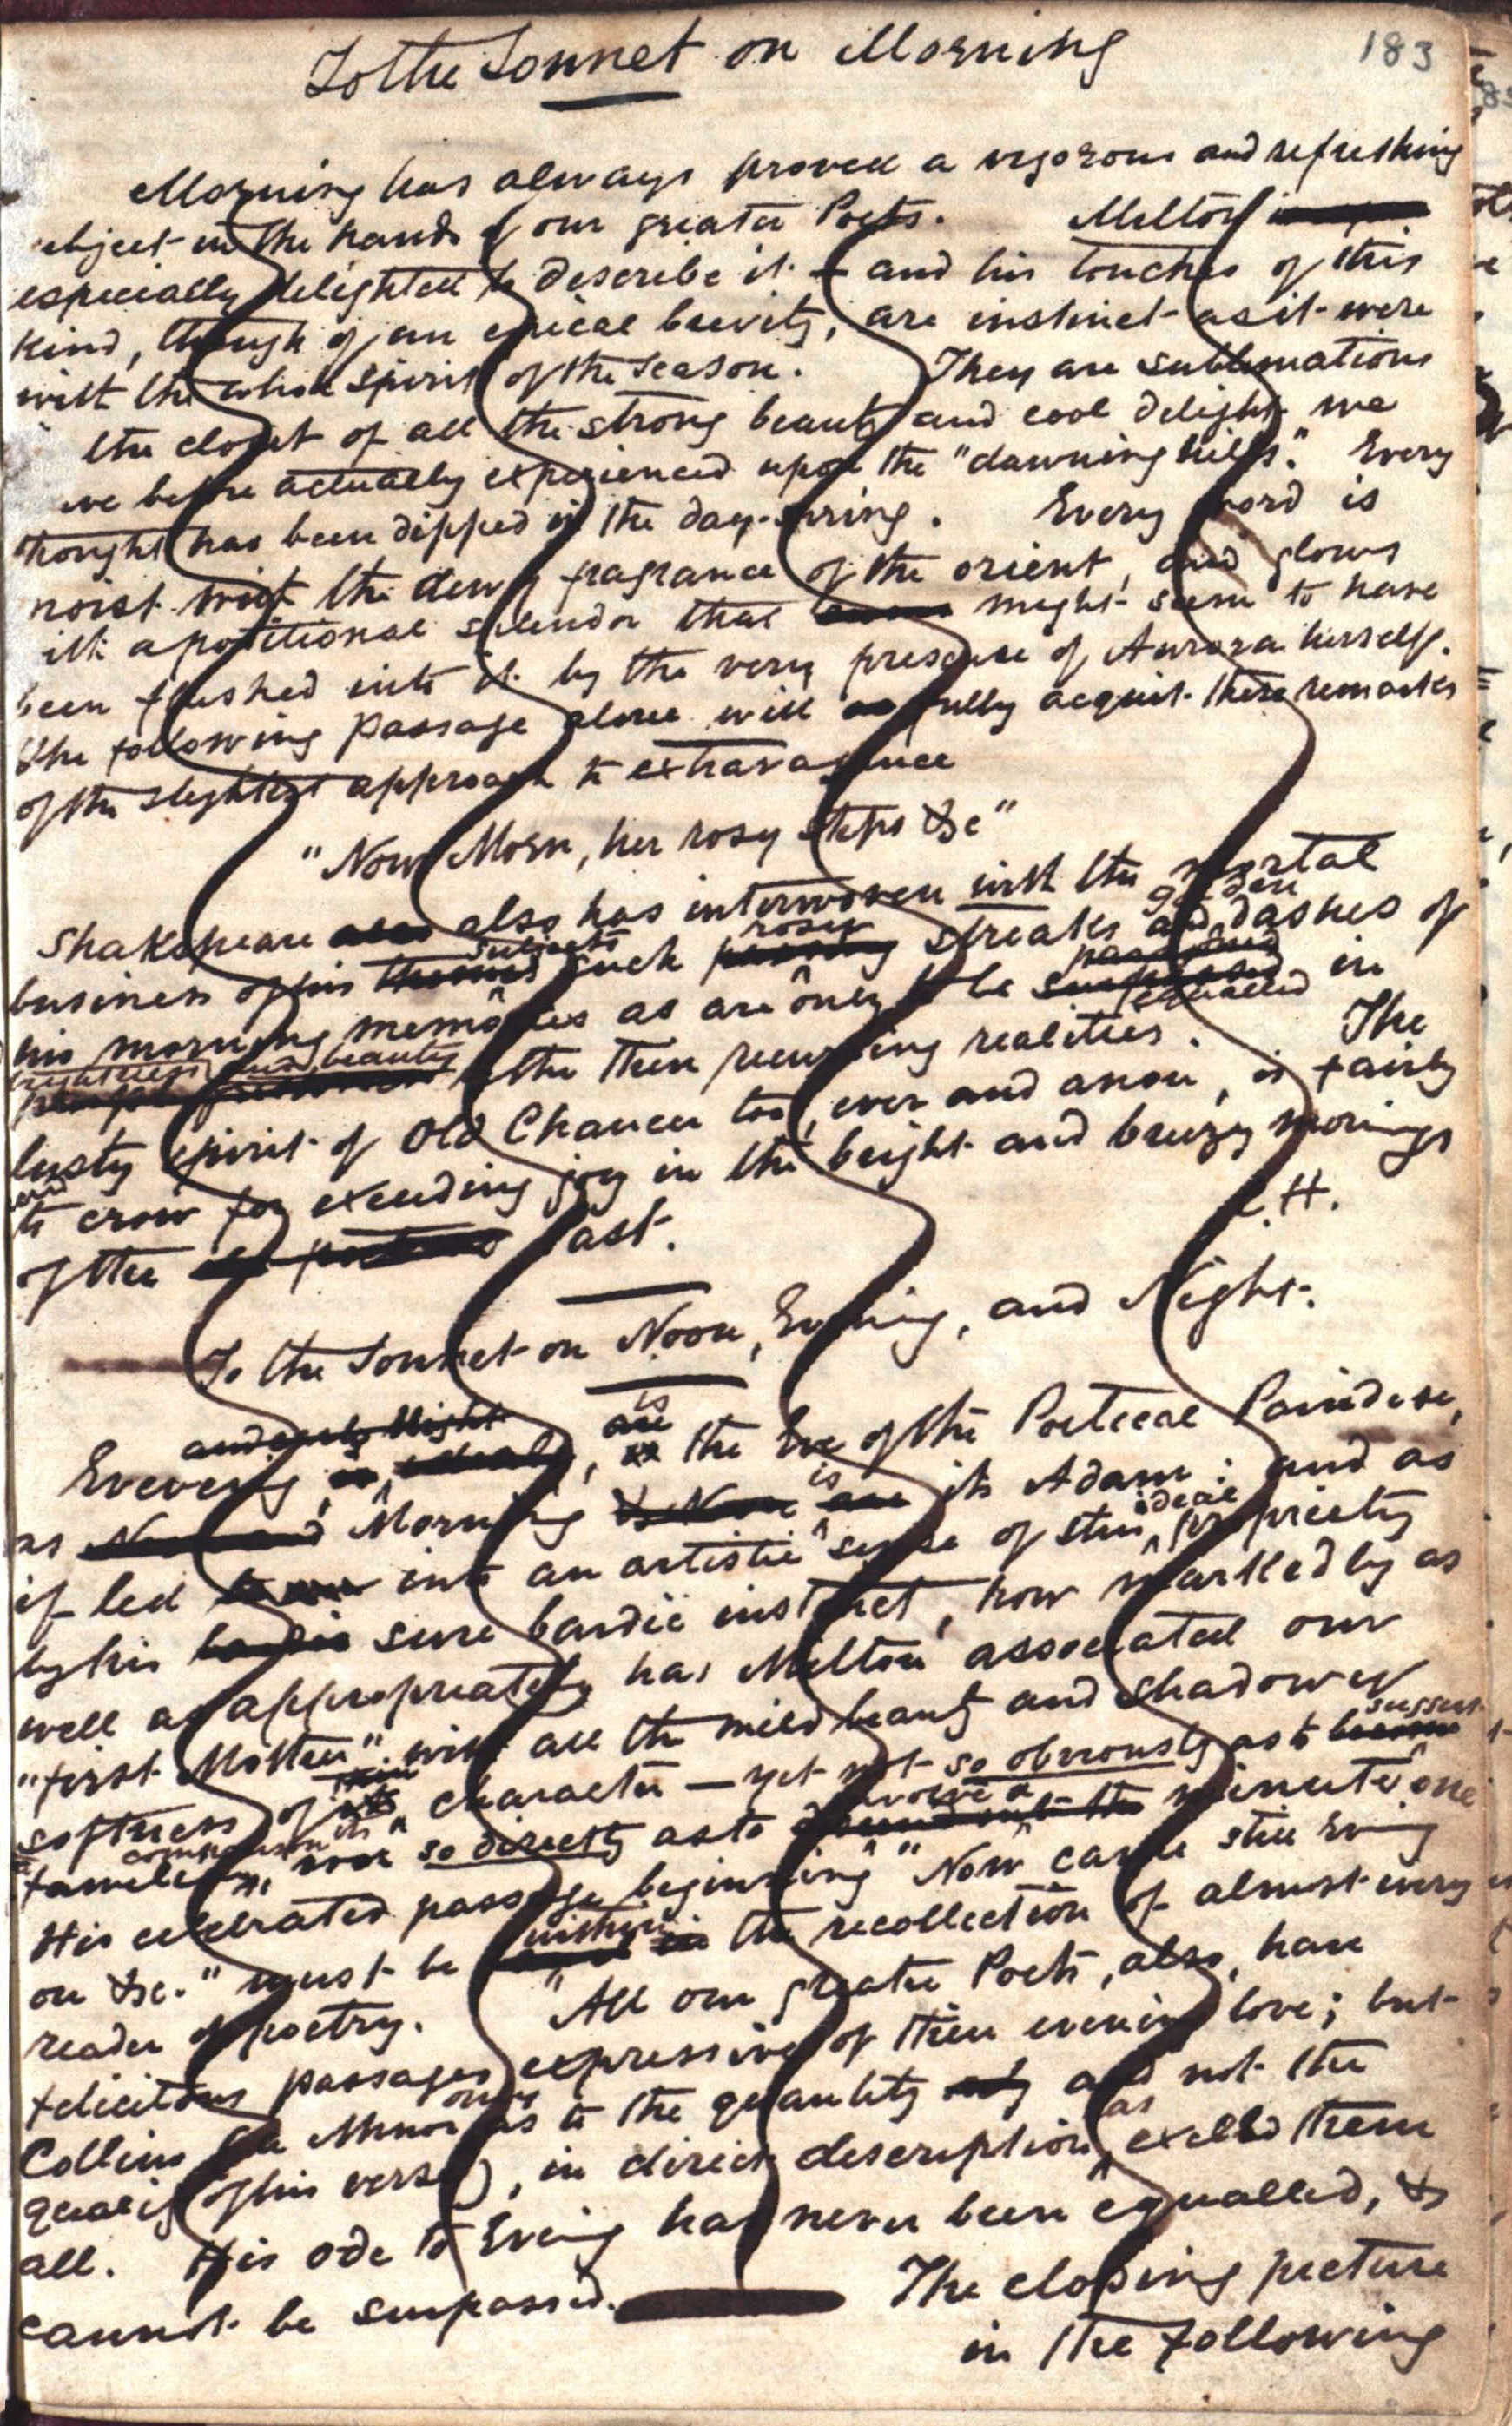 To the Sonnet on Morning
183
Morning has always proved a vigorous and refreshing
ubject in the hands of our greater Poets. Milton
especially delighted to describe it – and his touches of this
kind, though of an epical brevity, are instinct as it were
with the whole spirit of the Season. They are sublimations
the closet of all the strong beauty and cool delight we
ve before actually experienced upon the "dawning hills." Every
thought has been dipped in the day-spring. Every word is
moist with the dewy fragrance of the orient, and glows
ith a positional splendor that might seem to have
been flushed into it by the very presence of Aurora herself.
The following passage alone will fully acquit these remarks
of the slightest approach to extravagence
"Now Morn, her rosy steps &c"
Shakspeare also has interwoven with the mortal
business of his subjects such rosy streaks and golden dashes of
his morning memories as are only to be equalled in
brightness and beauty the then recurring realities. The
lusty spirit of Old Chaucer too, ever and anon, is fairly
to crow for exceeding joy in the bright and breezy mornings
of the past.
C.H.
To the Sonnet on Noon, Evening, and Night.
Evening, is the Eve of the Poetical Paradise,
as Morning is its Adam: and as
if led into an artistic sense of this ideal propriety
by his sure bardic instinct, how markedly as
well as appropriately has Milton associated our
"first Mother" with all the mild beauty and shadowy
softness of its character – yet not so obviously as to suggest
tameless, nor so directly as to involve a minute one
comparison
His celebrated passage beginning "Now came still Evning
on &c." must be within the recollection of almost every
reader of poetry. "All our greater Poets, also, have
felicitous passages expressive of their evening love; but
Collins (a Minor only as to the quantity and not the
quality of his verse), in direct description, has excelled them
all. His ode to Evening has never been equalled, &
cannot be surpassed. The closing picture
in the following